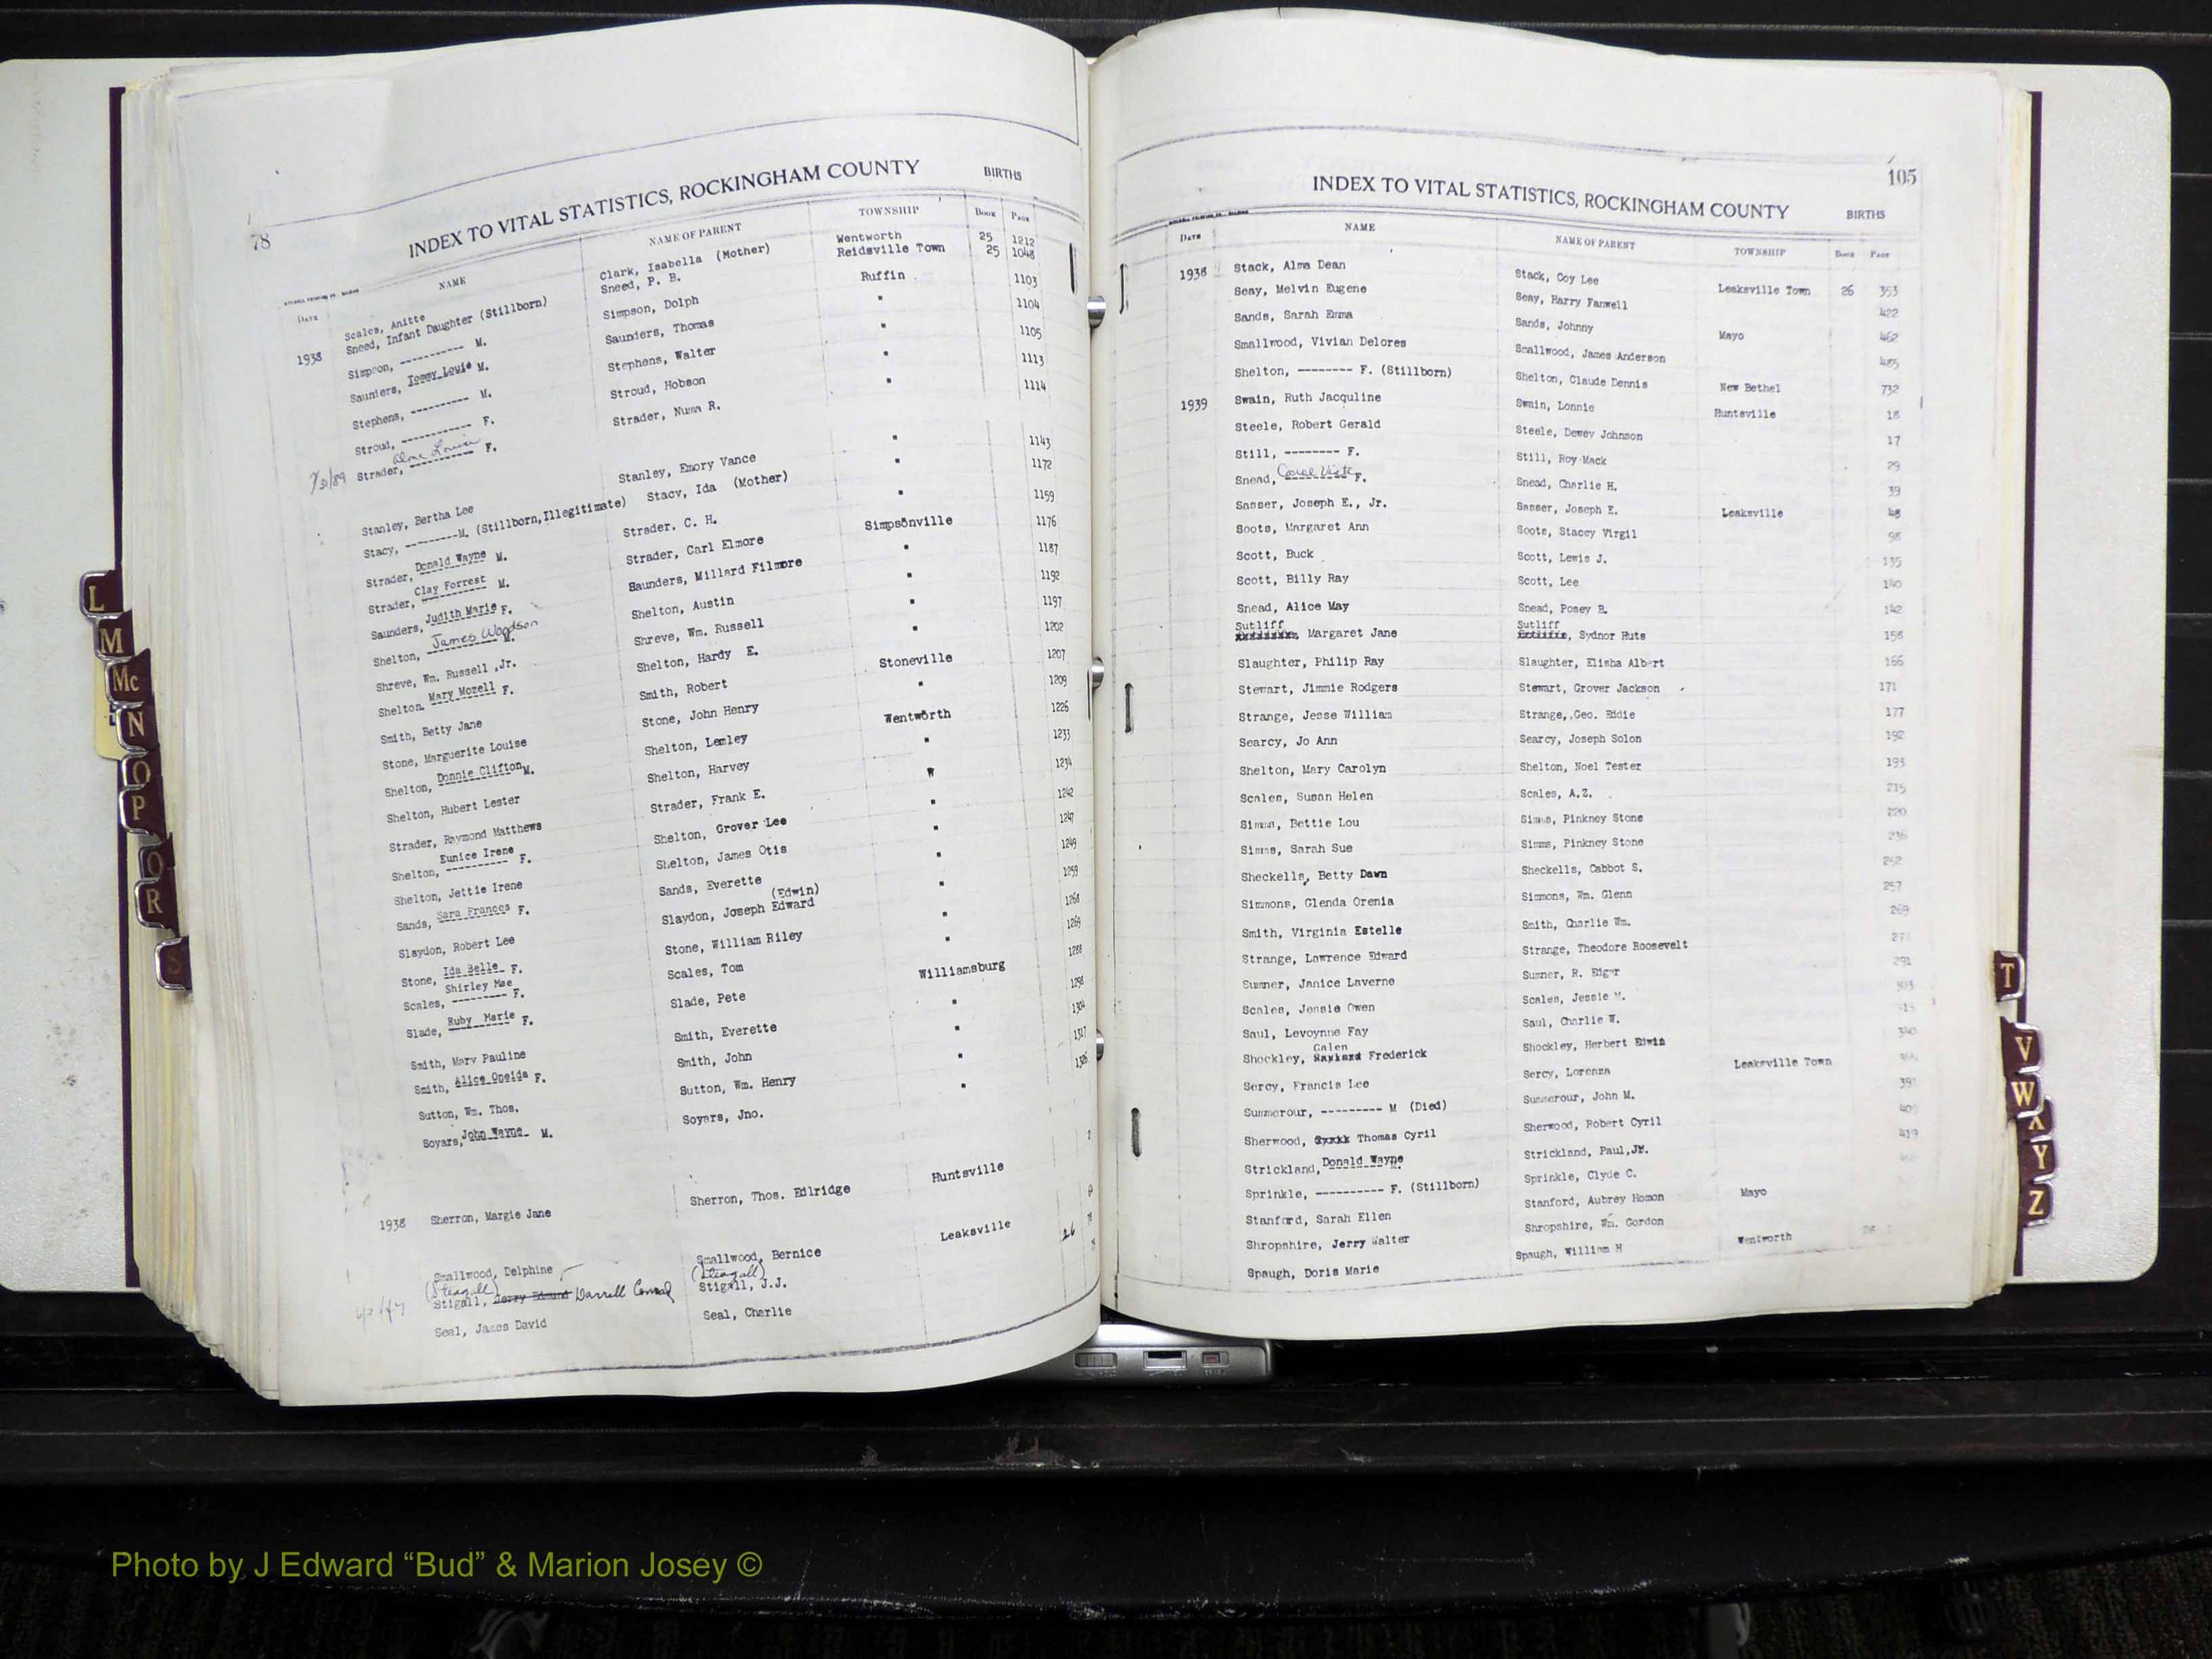 78
INDEX TO VITAL STATISTICS, ROCKINGHAM COUNTY BIRTHS
DATE NAME NAME OF PARENT TOWNSHIP BOOK PAGE
Scales, Anitte Clark, Isabella (Mother) Wentworth 25 1212
1938 Sneed, Infant Daughter (Stillborn) Sneed, P. B. Reidsville Town 25 1048
Simpson, ---------- M. Simpson, Dolph Ruffin 1103
Saunders, Tommy Louie M. Saunders, Thomas " 1104
Stephens, ---------- M. Stephens, Walter " 1105
Stroud, ----------- F. Stroud, Hobson " 1113
7/31/89 Strader, ---------- F. Strader, Numa R. " 1114
Stanley, Bertha Lee Stanley, Emory Vance " 1143
Stacy, ---------M. (Stillborn,Illegitimate) Stacy, Ida (Mother) " 1172
Strader, Donald Wayne M. Strader. C. H. " 1159
Strader, Clay Forrest M. Strader, Carl Elmore Simpsonville 1176
Saunders, Judith Marie F. Saunders, Millard Filmore " 1187
Shelton, James Woodson M. Shelton, Austin " 1192
Shreve, Wm. Russell ,Jr. Shreve, Wm. Russell " 1197
Shelton, Mary Mozell F. Shelton, Hardy E. " 1202
Smith, Betty Jane Smith, Robert Stoneville 1207
Stone, Marguerite Louise Stone, John Henry " 1209
Shelton, Donnie Clifton M. Shelton, Lemley Wentworth 1226
Shelton, Hubert Lester Shelton, Harvey " 1233
Strader, Raymond Matthews Strader, Frank E. " 1234
Shelton, Eunice Irene F. Shelton, Grover Lee " 1242
Shelton, Jettie Irene Shelton, James Otis " 1247
Sands, Sara Frances F. Sands, Everette " 1249
Slaydon, Robert Lee Slaydon, Joseph Edward (Edwin) " 1259
Stone, Ida Belle F. Stone, William Riley " 1268
Scales, Shirley Mae F. Scales, Tom " 1269
Slade, Ruby Marie F. Slade, Pete Williamsburg 1288
Smith, Mary Pauline Smith, Everette " 1298
Smith, Alice Oneida F. Smith, John " 1304
Sutton, Wm. Thos. Sutton, Wm. Henry " 1317
Soyars, John Wayne M. Soyars, Jno. "
1938 Sherron, Margie Jane Sherron, Thos. Edlridge Huntsville
Smallwood, Delphine Smallwood, Bernice Leaksville 26
(Steagall) (Steagall)
Stigall, Jerry Edmund Darrell Conrad Stigall, J.J.
Seal, James David Seal, Charlie
105
INDEX TO VITAL STATISTICS, ROCKINGHAM COUNTY BIRTHS
DATE NAME NAME OF PARENT TOWNSHIP BOOK PAGE
1938 Stack, Alma Dean Stack, Coy Lee Leaksville Town 26 353
Seay, Melvin Eugene Seay, Harry Fanwell 422
Sands, Sarah Emma Sands, Johnny Mayo 462
Smallwood, Vivian Delores Smallwood, James Anderson 485
Shelton, -------- F. (Stillborn) Shelton, Claude Dennis New Bethel 732
1939 Swain, Ruth Jacquline Swain, Lonnie Huntsville 18
Steele, Robert Gerald Steele, Dewey Johnson 17
Still, -------- F. Still, Roy Mack 29
Snead, F. Snead, Charlie H. 39
Sasser, Joseph E., Jr. Sasser, Joseph E. Leaksville 48
Soots, Margaret Ann Soots, Stacey Virgil 98
Scott, Buck Scott, Lewis J. 135
Scott, Billy Ray Scott, Lee 140
Snead, Alice May Snead, Posey R. 142
Sutliff, Margaret Jane Sutliff, Sydnor Huts 158
Slaughter, Philip Ray Slaughter, Elisha Albert 166
Stewart, Jimmie Rodgers Stewart, Grover Jackson 171
Strange, Jesse William Strange,,Geo. Eddie 177
Searcy, Jo Ann Searcy, Joseph Solon 192
Shelton, Mary Carolyn Shelton, Noel Tester 193
Scales, Susan Helen Scales, A.Z. 215
Simms, Bettie Lou Simms, Pinkney Stone 220
Simms, Sarah Sue Simms, Pinkney Stone 236
Sheckells, Betty Dawn Sheckells, Cabbot S. 252
Simmons, Glenda Orenia Simmons, Wm. Glenn 257
Smith, Virginia Estelle Smith, Charlie Wm. 269
Strange, Lawrence Edward Strange, Theodore Roosevelt
Sumner, Janice Laverne Sumner, R. Edgar 291
Scales, Jessie Owen Scales, Jessie M. 303
Saul, Levoynne Fay Saul, Charlie W.
Shockley, Galen Frederick Shockley, Herbert Edwin 340
Sercy, Francis Lee Sercy, Lorenza Leaksville Town
Summerour, --------- M (Died) Summerour, John M. 391
Sherwood, Thomas Cyril Sherwood, Robert Cyril 409
Strickland, Donald Wayne Strickland, Paul,JR. 419
Sprinkle, ---------- F. (Stillborn) Sprinkle, Clyde C.
Stanford, Sarah Ellen Stanford, Aubrey Homon Mayo
Shropshire, Jerry Walter Shropshire, Wm. Gordon
Spaugh, Doris Marie Spaugh, William H Wentworth
L
M
Mc
N
O
P
Q
R
S
T
V
W
X
Y
Z
Photo by J Edward “Bud” & Marion Josey ©